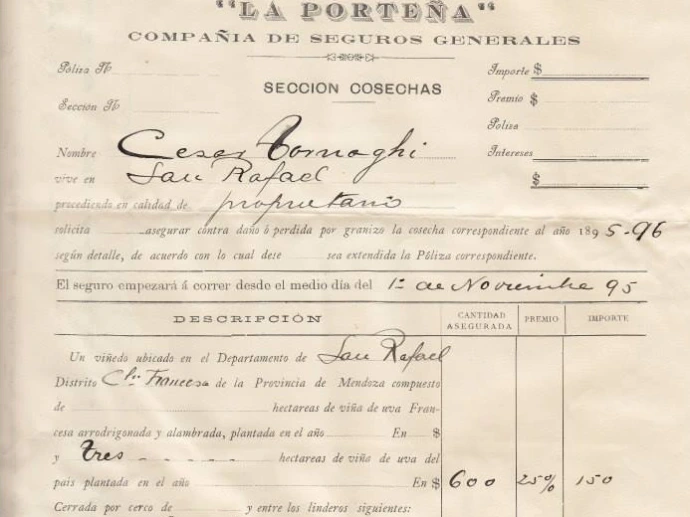 "LA PORTEÑA"
COMPAÑIA DE SEGUROS GENERALES
Póliza Nº
SECCION COSECHAS
Sección Nº
Importe $
Premio $
Poliza
Intereses
$
Nombre Cesar Tornaghi
vive en San Rafael
procediendo en calidad de propietario
solicita asegurar contra daño ó perdida por granizo la cosecha correspondiente al año 1895-96
según detalle, de acuerdo con lo cual dese sea extendida la Póliza correspondiente.
El seguro empezará á correr desde el medio día del 1º de Noviembre 95
DESCRIPCIÓN CANTIDAD ASEGURADA PREMIO IMPORTE
Un viñedo ubicado en el Departamento de San Rafael
Distrito Clia Francesa de la Provincia de Mendoza compuesto
de hectareas de viña de uva Fran-
cesa arrodrigonada y alambrada, plantada en el año En $
y tres hectareas de viña de uva del
pais plantada en el año En $ 600 25% 150
Cerrada por cerco de y entre los linderos siguientes: